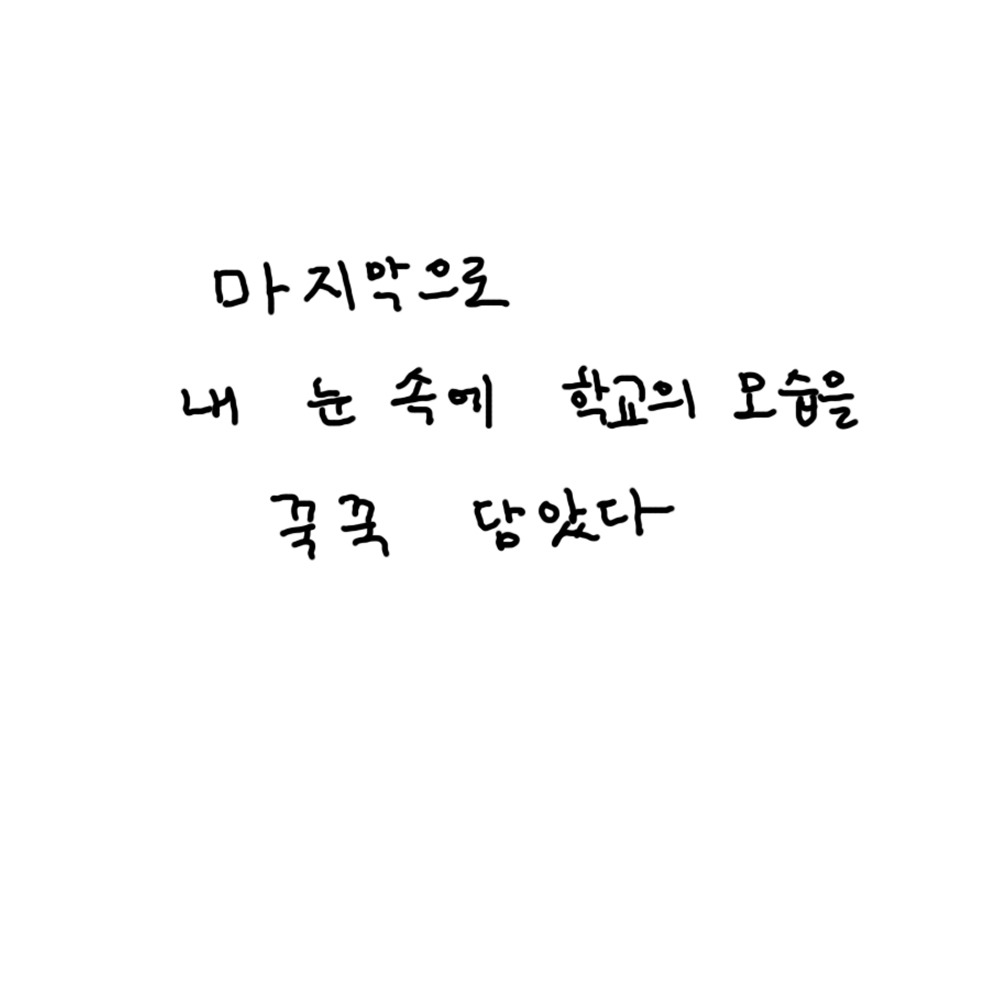 마지막으로
내 눈 속에 학교의 모습을
꾹꾹 담았다